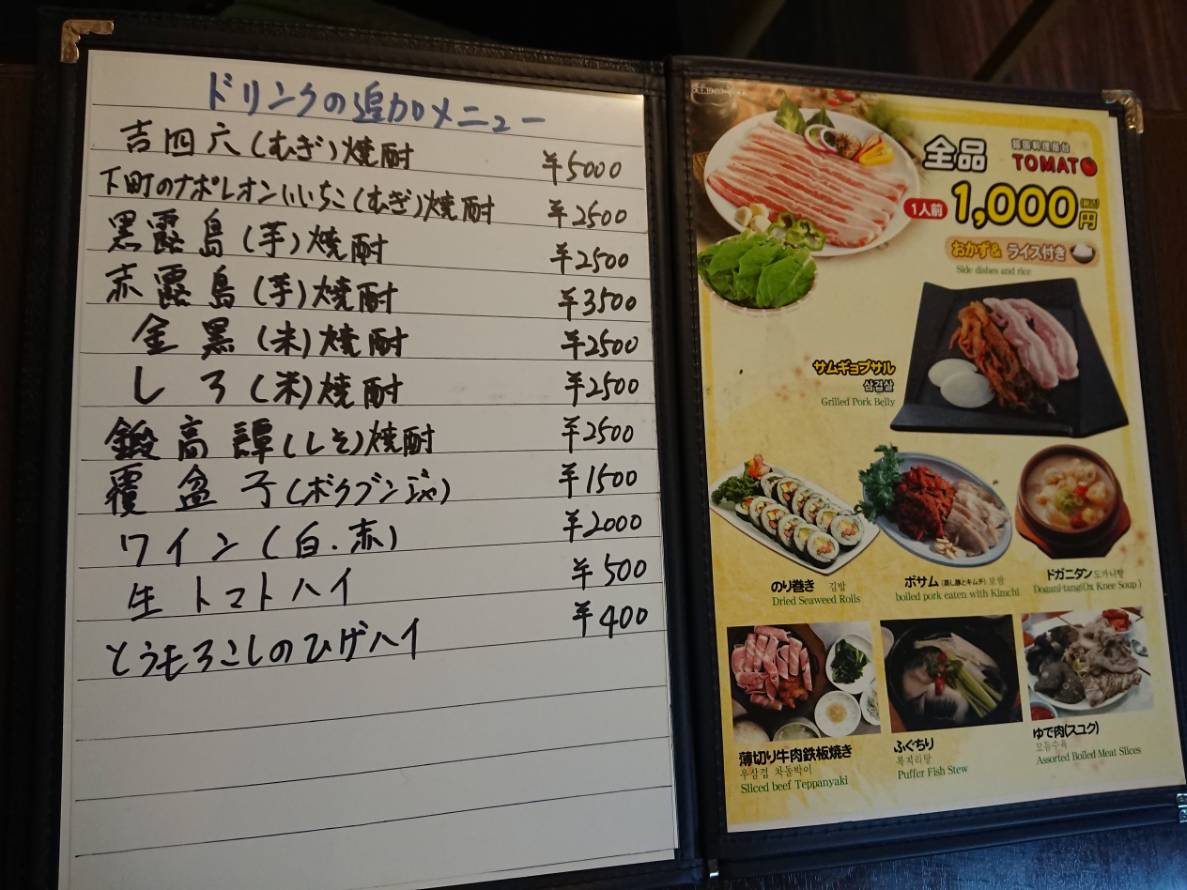 ドリンクの追加メニュー
吉四六(むぎ)焼酎 ¥5000
下町のナポレオンいいちこ(むぎ)焼酎 ¥2500
黒霧島(芋)焼酎 ¥2500
赤霧島(芋)焼酎 ¥3500
金黒(米)焼酎 ¥2500
しろ(米)焼酎 ¥2500
鍛高譚(しそ)焼酎 ¥2500
覆盆子(ボクブンジャ) ¥1500
ワイン(白.赤) ¥2000
生トマトハイ ¥500
とうもろこしのひげハイ ¥400
全品
韓国料理屋台
TOMATO
1人前 1,000円(税込)
おかず& ライス付き
Side dishes and rice
サムギョプサル
삼겹살
Grilled Pork Belly
のり巻き 김밥
Dried Seaweed Rolls
ボサム(蒸し豚とキムチ) 보쌈
boiled pork eaten with Kimchi
ドガニタン 도가니탕
Dogani-tang(Ox Knee Soup )
薄切り牛肉鉄板焼き
우삼겹 차돌박이
Sliced beef Teppanyaki
ふぐちり
복지리탕
Puffer Fish Stew
ゆで肉(スユク)
모듬수육
Assorted Boiled Meat Slices